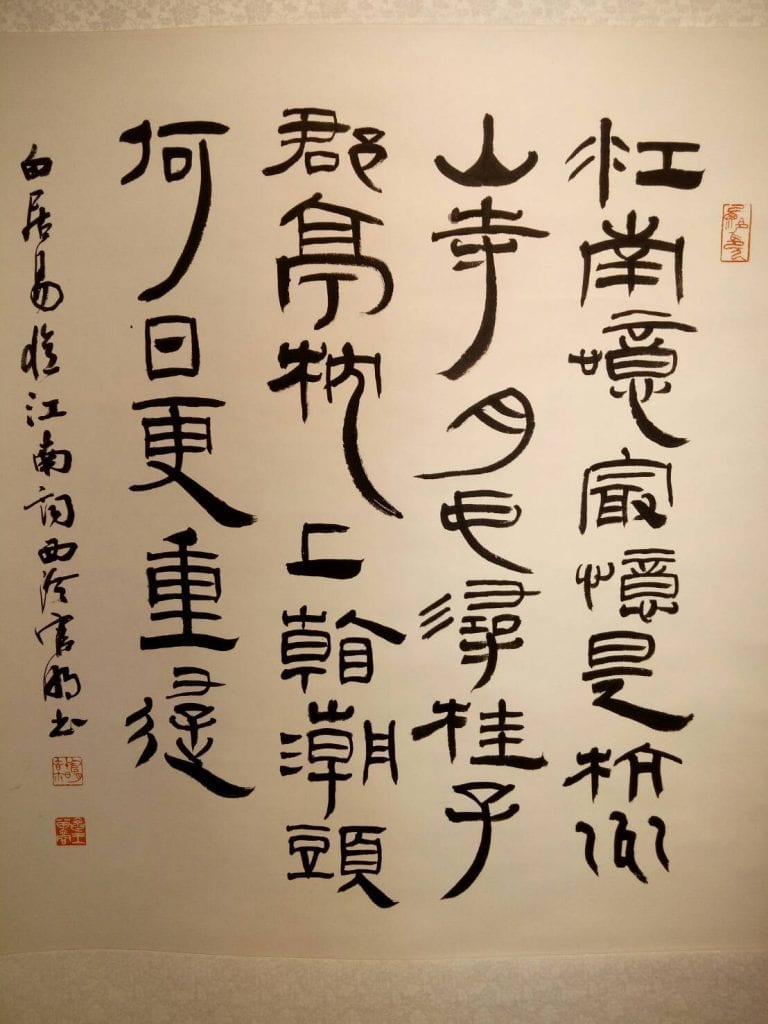 江南憶最憶是杭州
山寺月中尋桂子
郡亭枕上看潮頭
何日更重遊
白居易憶江南詞西泠書